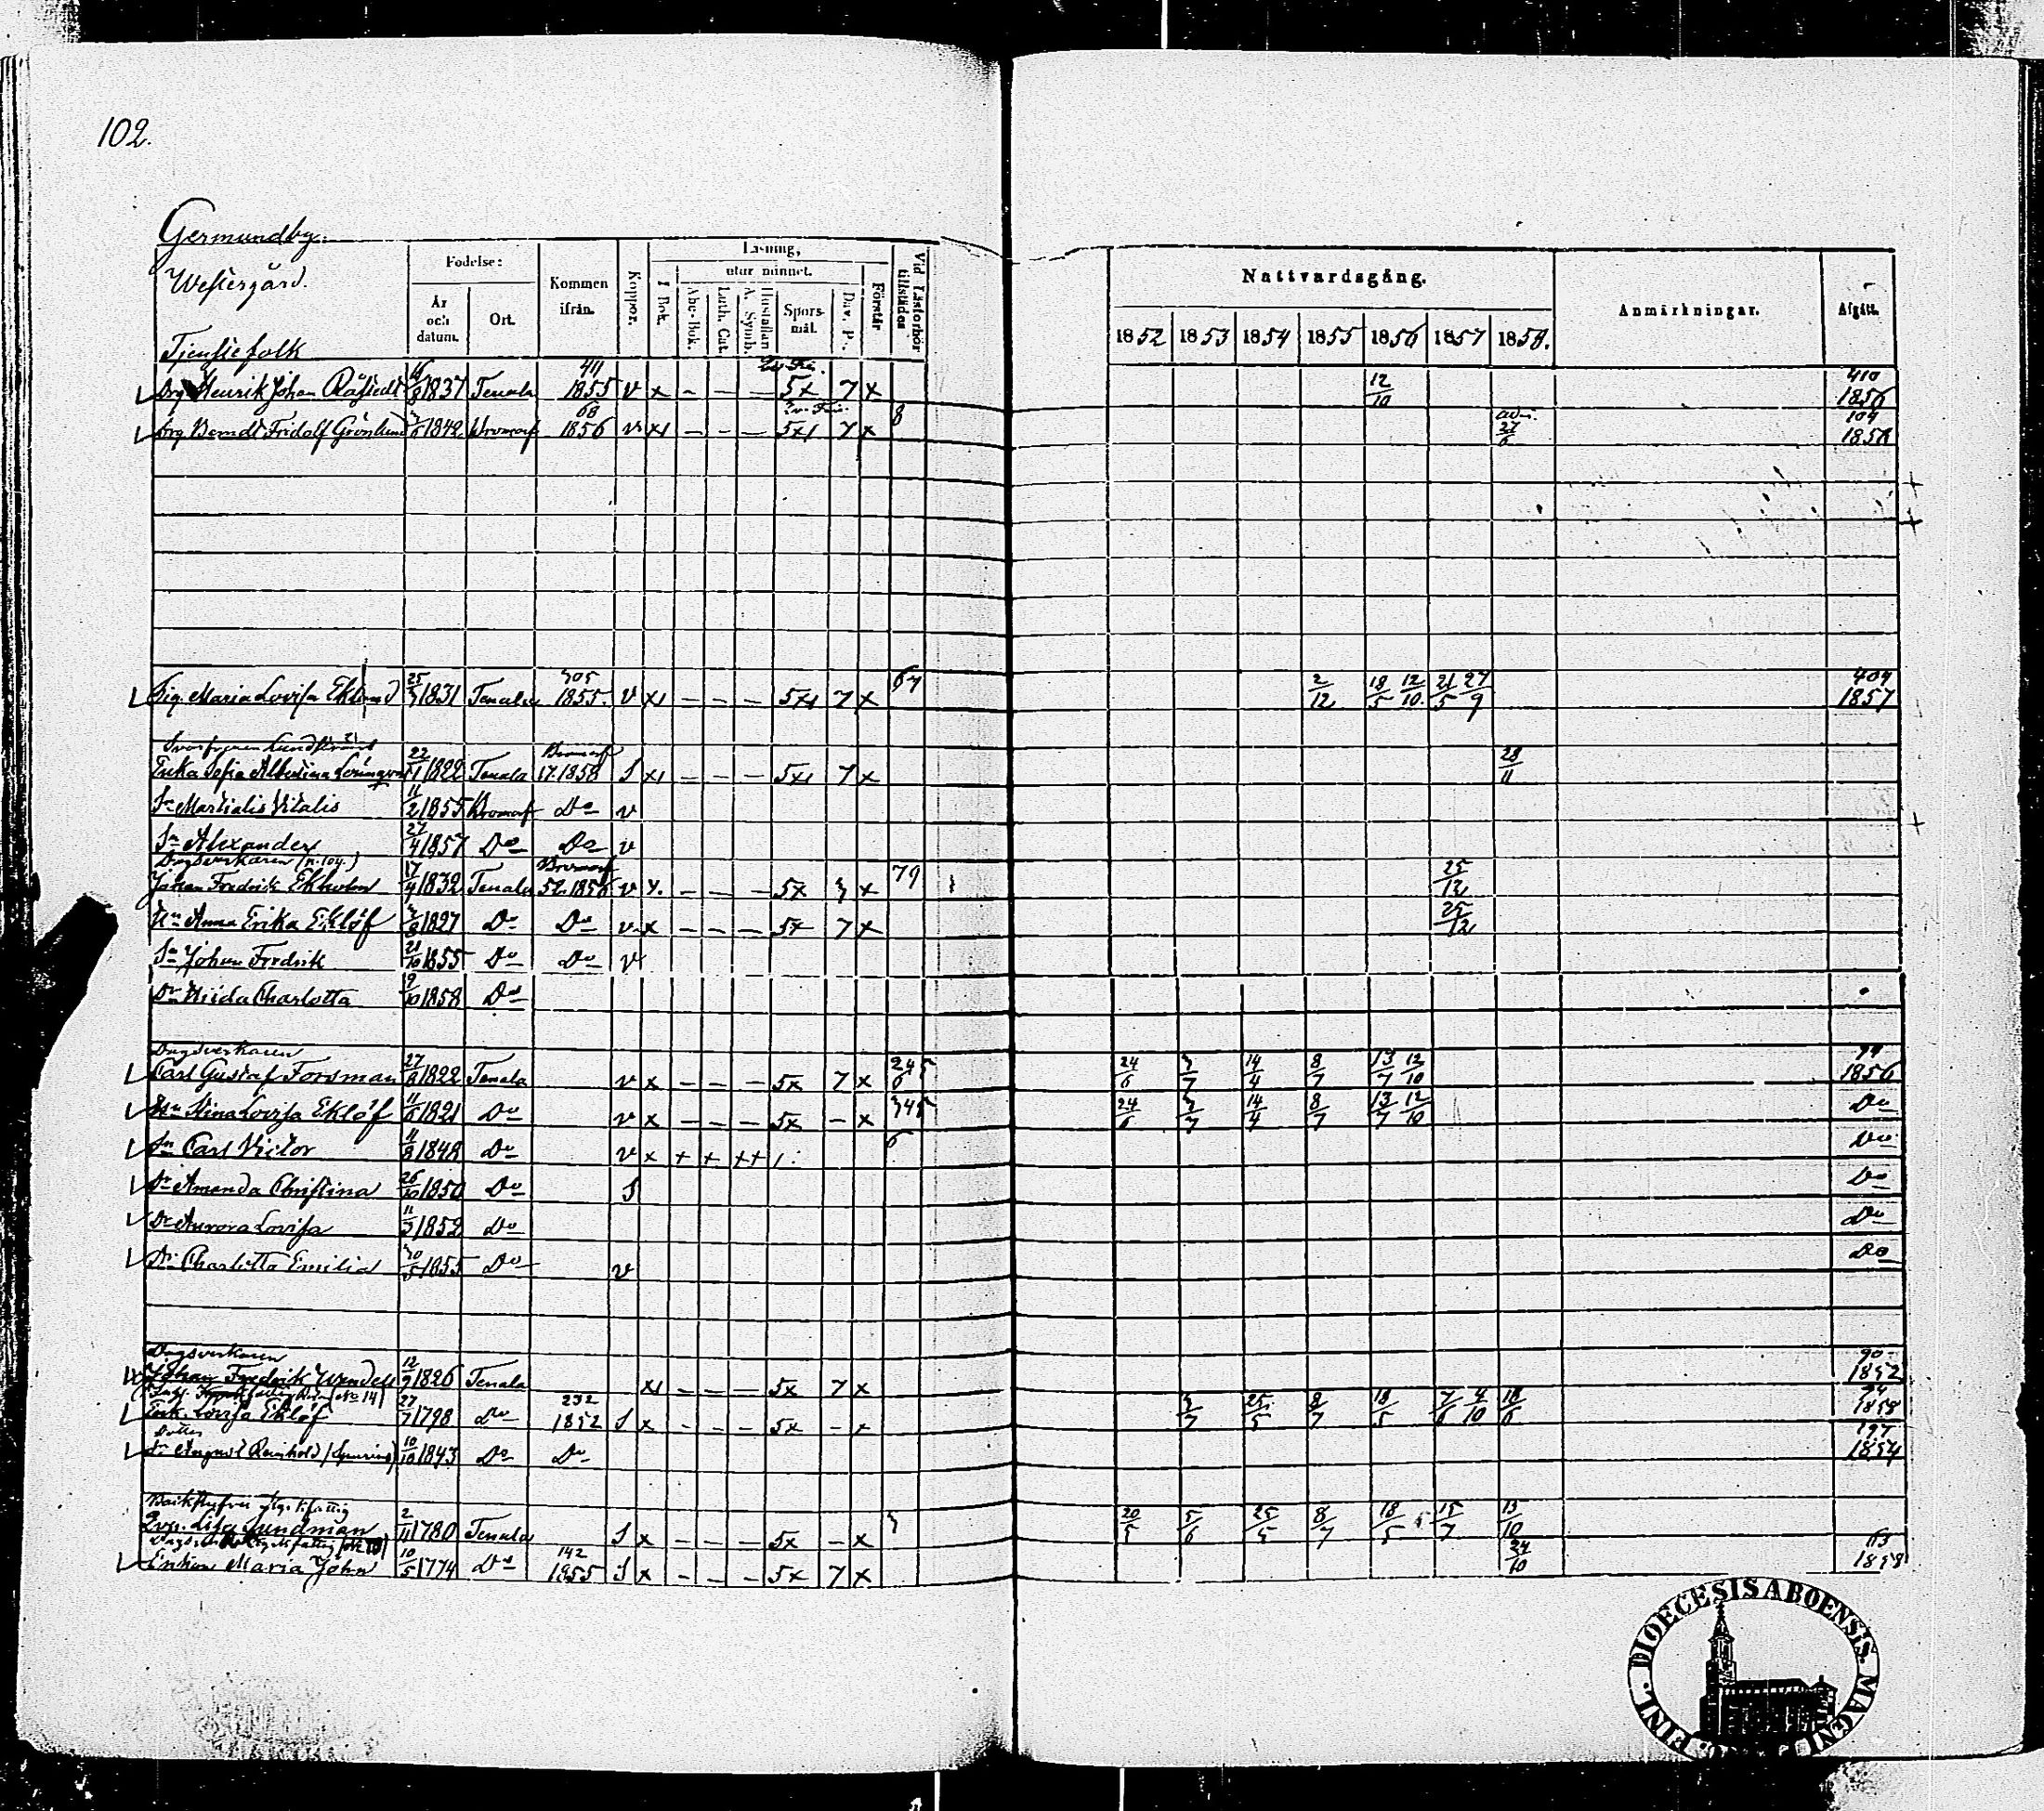 102.
Germundby.
Westergård.
Tjenstefolk
Födelse:
År och datum.
Ort.
Kommen ifrån.
Koppor.
Läsning,
I Bok.
utur minnet.
Abc-Bok.
Luth. Cat.
Hustaflan A. Symb.
Spörsmål.
Dav. P.
Förstår
Vid Läsförhör tillstädes
Nattvardsgång.
1852 1853 1854 1855 1856 1857 1858.
Anmärkningar.
Afgått.
Drg Henrik Johan 1837 Tenala 1855 v x - - - 5x 7 x 12/10 410 1856
Drg Berndt Fridolf Grönlund 1842 Bromarf 68 1856 v x - - - 5x 7 x 8 27/6 104 1858
Pig. Maria Lovisa Eklund 25/3 1831 Tenala 305 1855. v x - - - 5x 7 x 67 2/12 18/5 12/10 21/5 27/9 404 1857
Erika Sofia Albertina 22/11 1822 Tenala Bromarf 17.1858 S x - - - 5x 7 x 28/11
Sn Martialis Vitalis 11/2 1855 Bromarf Do v
Sn Alexander 27/4 1857 Do Do v
Dagsverkaren (n. 104.)
Johan Fredrik Ekholm 17/4 1832 Tenala Bromarf 52.1856 v x - - - 5x 7 x 79 25/12
Hu Anna Erika Eklöf 1827 Do Do v x - - - 5x 7 x 25/12
Sn Johan Fredrik 21/10 1855 Do Do v
Dr Hilda Charlotta 19/10 1858 Do
Dagsverkaren
Carl Gustaf Forsman 27/8 1822 Tenala v x - - - 5x 7 x 24/6 3/7 14/4 8/7 13/7 12/10 1856
Hu Stina Lovisa Eklöf 11/6 1821 Do v x - - - 5x - x 345 24/6 3/7 14/4 8/7 13/7 12/10 Do
Sn Carl Victor 11/8 1848 Do v x + + ++ 6 Do
Dr Amanda Christina 26/10 1850 Do S Do
Dr Aurora Lovisa 11/3 1852 Do Do
Dr Charlotta Emilia 30/5 1855 Do v Do
Dagsverkaren
Johan Fredrik Wendell 12/9 1826 Tenala x - - - 5x 7 x 90 1852
Enk. Lovisa Eklöf 27/7 1798 Do 232 1852 S x - - - 5x - x 3/7 25/5 8/7 18/5 7/6 4/10 18/6 1858
Sn August Reinhold 10/10 1843 Do Do 197 1854
Lisa Sundman 2/11 1780 Tenala S x - - - 5x - x 3 20/5 5/6 25/5 8/7 18/5 15/7 13/10
Enkan Maria John 10/5 1774 Do 142 1855 S x - - - 5x 7 x 24/10 63 1858
DIOECESIS ABOENSIS. MAGNI DUC. FINL.